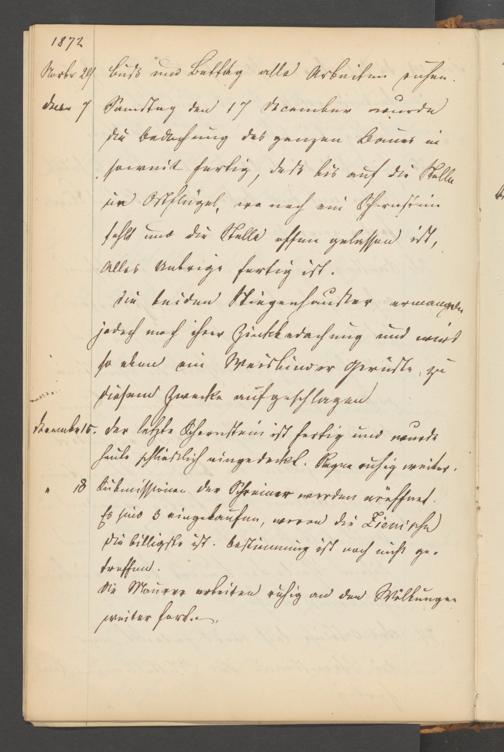 1872
Novbr 29. Buß und Bettag alle Arbeiten ruhen.
Decbr 7 Samstag den 17 December wurde
die Bedachung des ganzen Baues in
soweit fertig, daß bis auf die Stelle
im Ostflügel, wo noch ein Schornstein
fehlt und die Stelle offen gelassen ist,
alles Uebrige fertig ist.
Die beiden Stiegenhäuser ermangeln
jedoch noch ihrer Zinkbedachung und wird
so eben ein Weisbinder Gerüste, zu
diesem Zwecke aufgeschlagen
December 15. Der letzte Schornstein ist fertig und wurde
heute schließlich eingedeckt. ruhig weiter.
" 18 Submissionen der Schreiner werden eröffnet.
Es sind 3 eingelaufen, wovon die
die billigste ist. Bestimmung ist noch nicht ge-
troffen.
Die Maurer arbeiten ruhig an den Wölbungen
weiter fort.